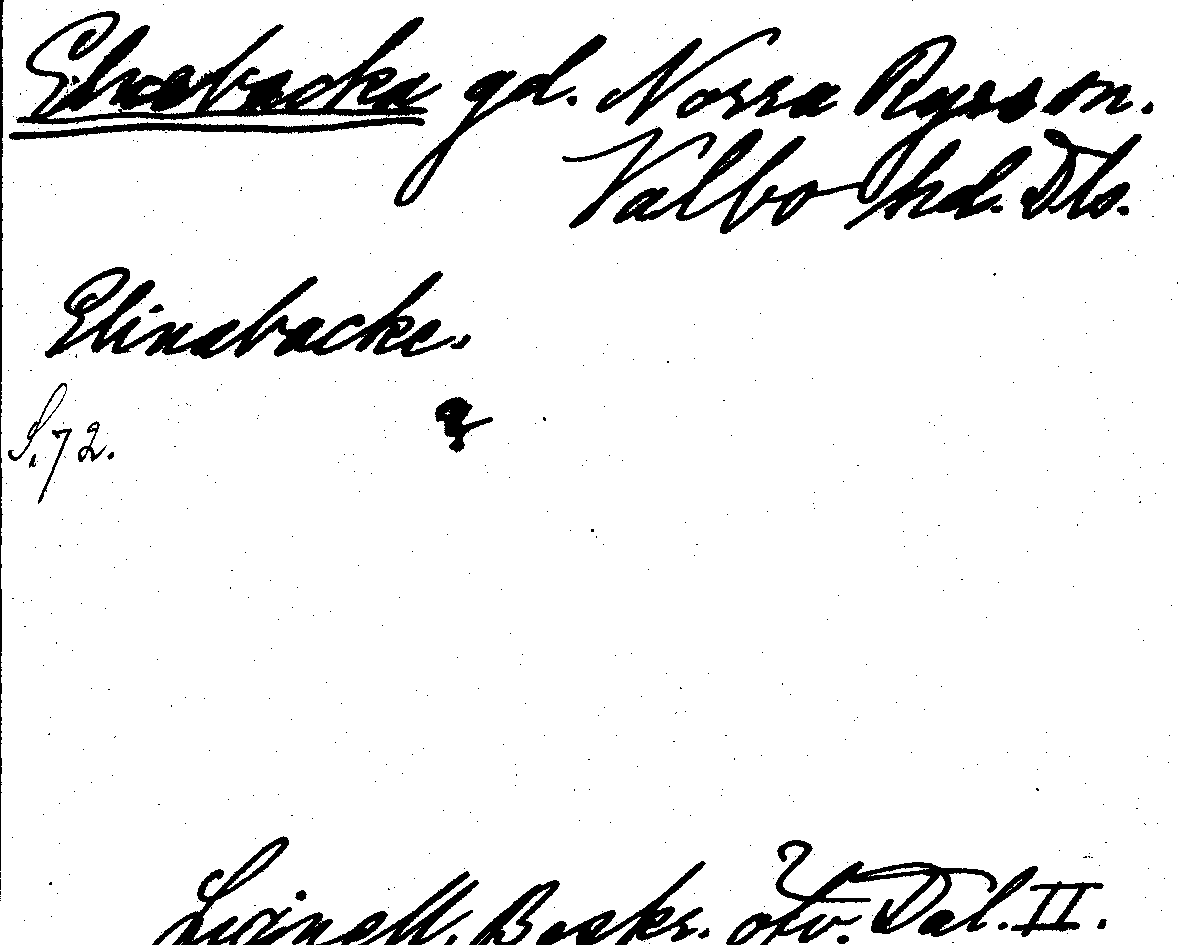 gd. Norra Ryrs sn.
Valbo hd. Dls.
Elinabacke.
S. 72.
Lignell, Beskr. öfv. Dal. II.